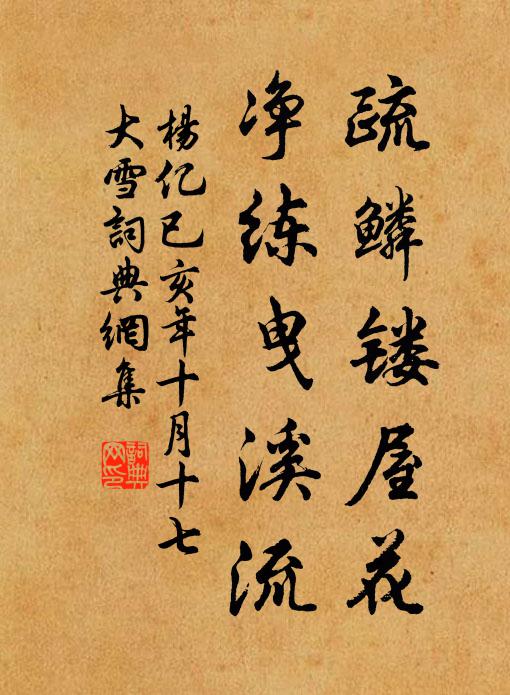 疏鳞镂屋花
净练曳溪流
楊亿己亥年十月十七
大雪詞典網集
詞典网印